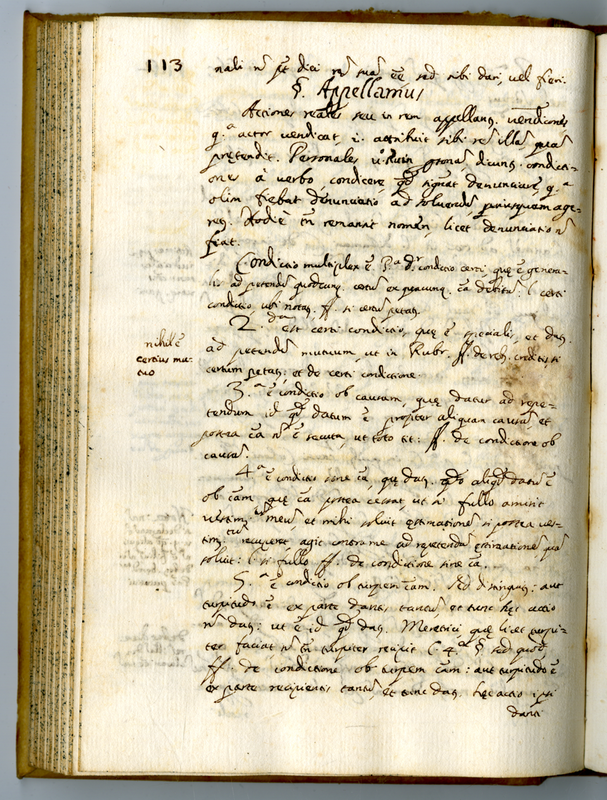 113
nali n̄ pt dici rem suam eē sed sibi dari, vel fieri.
§. Appellamus
Actiones reales seu in rem appellant. vendiciones
q.ᵃ actor vendicat i. attribuit sibi rem illam quam
pretendit. Personales v̊ in personam dicunt. condicti-
ones à verbo condicere qđ significat denunciare, q.ᵃ
olim fiebat denunciatio ad solvendum, priusquam age-
ret. Hodiè tn̄ remansit nomen, licet denunciatio n̄
fiat.
Condictio multiplex ē. P.ᵃ dr. condictio certi, quę ē genera-
lis ad petendum quodcunq. certum ex quacunq. cā debitum. l. certi
condictio, ubi notat. ff. si certum petat.
2.ᵈᵃ est certi condictio, quę ē specialis, et dat.
ad petendum mutuum, ut in Rubr. ff. de reb. creditis si
certum petat. et de certi condictione.
nihil ē
certius mu-
tuo
3.ᵃ ē condictio ob causam, quę datur ad repe-
tendum id qđ datum ē propter aliquam causam et
postea cā n̄ ē secuta, ut toto tit: ff. de condictione ob
causam.
4.ᵃ ē condictio sine cā, quę dat. qdo aliqđ datum ē
ob cām quę cā postea cessat, ut si fullo amisit
vestim.ᵗᵘᵐ meum et mihi soluit estimationem si postea ves-
tim.ᵗᵘᵐ recuperet agit contra me ad repetendum estimationem quā
soluit: l. si fullo ff. de condictione sine cā.
5.ᵃ ē condictio ob turpem cām. Sed distinguit: aut
turpitudo ē ex parte dantis tantum et tunc hęc actio
n̄ dat: ut ē id qđ dat. Meretrici quę licet turpi-
ter faciat n̄ tn̄ turpiter recipit l. 4.ᵃ § sed quod
ff. de condictione ob turpem cām: aut turpitudo ē
ex parte recipientis tantum et tunc dat. hęc actio ipsi
danti